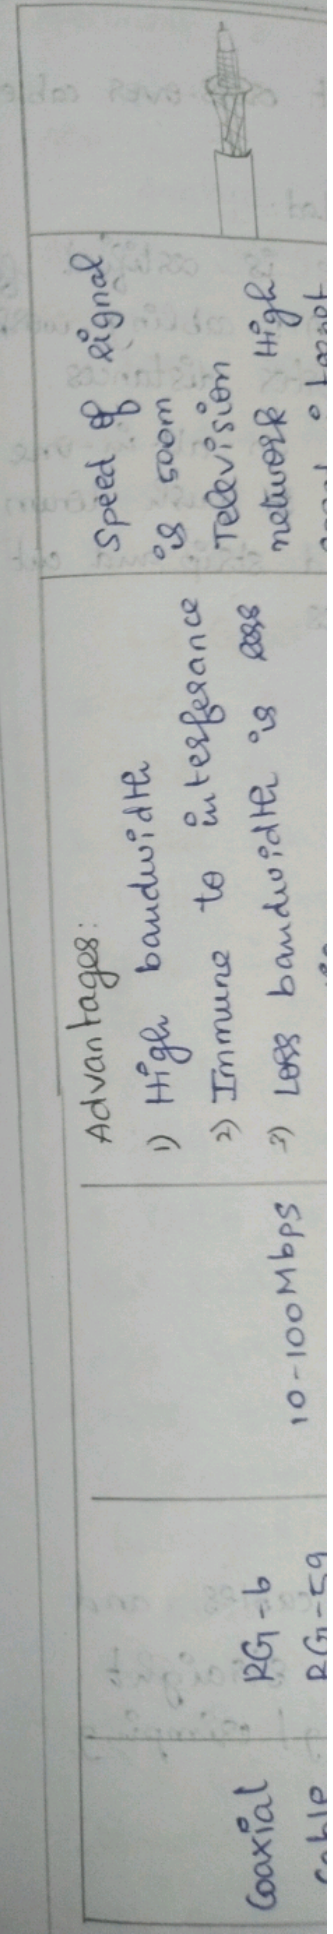 Coaxial
Cable
RG-6
RG-59
10-100Mbps
Advantages:
1) High bandwidth
2) Immune to interferance
3) Loss bandwidth is less
Speed of signal
is 500m
Television
network High